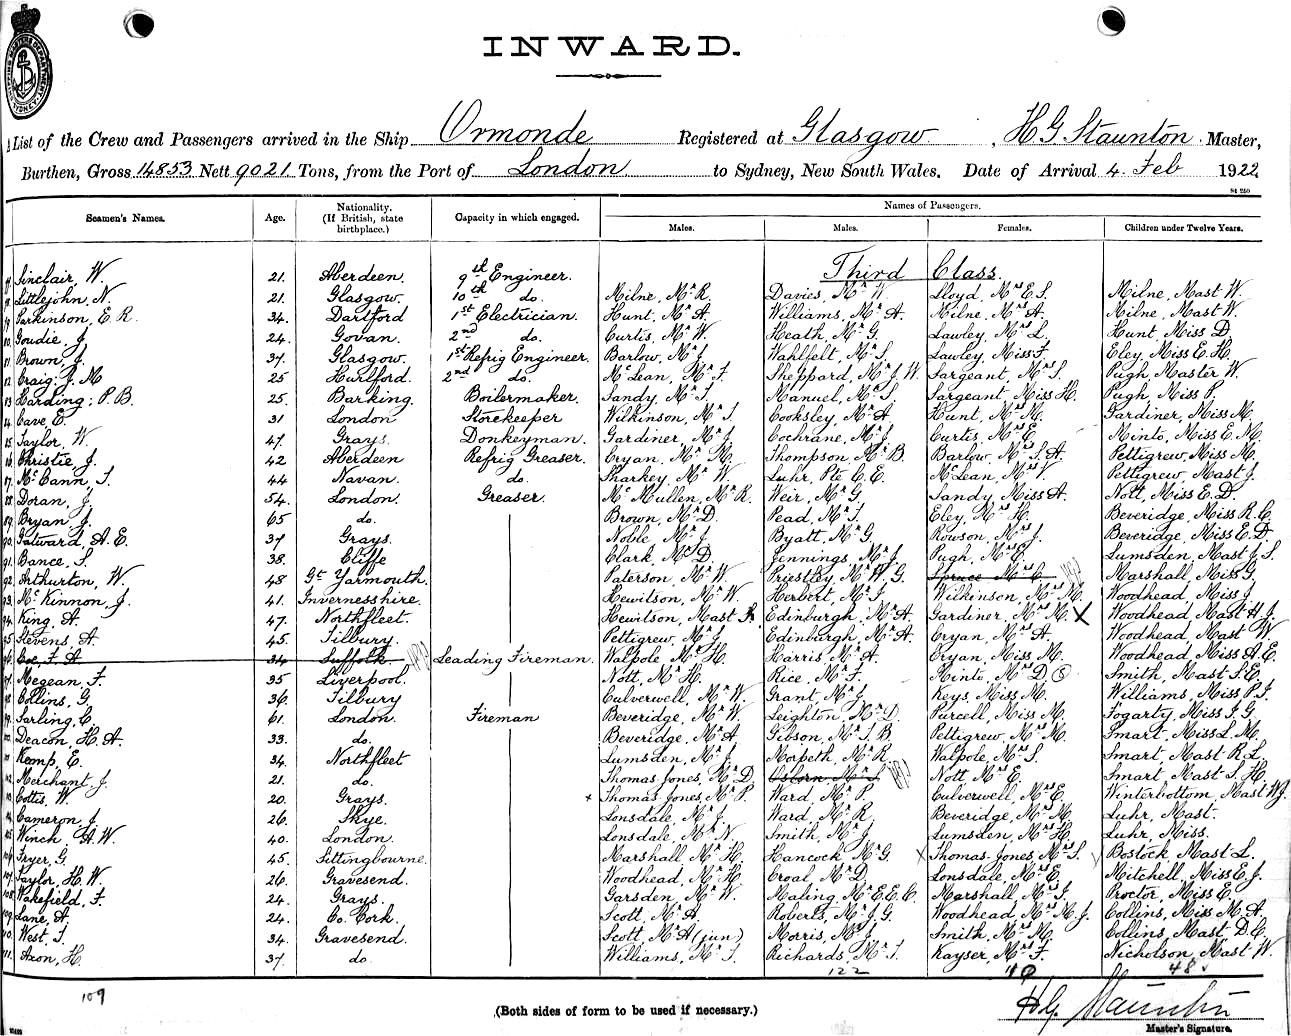 INWARD.
List of the Crew and Passengers arrived in the Ship Ormonde Registered at Glasgow, H G Staunton Master,
Burthen, Gross 14853 Nett 9021 Tons, from the Port of London to Sydney, New South Wales. Date of Arrival 4 Feb 1922
St 250
Seamen's Names. Age. Nationality. (If British, state birthplace.) Capacity in which engaged. Names of Passengers.
Males. Males. Females. Children under Twelve Years.
Third Class.
Sinclair, W. 21. Aberdeen. 9th Engineer.
Littlejohn, N. 21. Glasgow. 10th do. Milne, Mr R. Davies, Mr W. Lloyd, Mrs E.S. Milne, Mast W.
Parkinson, E R. 34. Dartford 1st Electrician. Hunt, Mr A. Williams, Mr A. Milne, Mrs A. Milne, Mast W.
Goudie, J 24. Govan. 2nd do. Curtis, Mr W. Heath, Mr G. Lawley, Mrs L. Hunt, Miss D.
Brown, J 37. Glasgow. 1st Refrig Engineer. Barlow, Mr J. Wahlfelt, Mr S. Lawley, Miss F. Eley, Miss E. H.
Craig, J. M 25 Hurlford. 2nd do. McLean, Mr F. Sheppard, Mr J. W. Sargeant, Mrs S. Pugh, Master W.
Harding, P. B. 25. Barking. Boilermaker. Sandy, Mr T. Manuel, Mr T. Sargeant, Miss H. Pugh, Miss P.
Cave, E. 31 London Storekeeper Wilkinson, Mr T Cooksley, Mr A Hunt, Mrs H. Gardiner, Miss M.
Taylor, W. 47. Grays. Donkeyman. Gardiner, Mr J. Cochrane, Mr J. Curtis, Mrs E. Minto, Miss E. M.
Christie, J. 42 Aberdeen Refrig Greaser. Cryan, Mr M. Thompson, Mr B. Barlow, Mrs S. A. Pettigrew, Miss M.
McCann, T. 44 Navan. do. Sharkey, Mr W. Luhr, Pte C. E. McLean, Mrs V. Pettigrew, Mast J.
Doran, J 54. London. Greaser. McMullen, Mr R. Weir, Mr G. Sandy, Miss A. Nott, Miss E. D.
Bryan, J. 65 do. Brown, Mr D. Pead, Mr T. Eley, Mrs H. Beveridge, Miss R. C.
Gatward, A. E. 37 Grays. Noble, Mr J. Byatt, Mr G. Rowson, Mrs J. Beveridge, Miss E. D.
Bance, T. 38. Cliffe Clark, Mr D. Jennings, Mr J. Pugh, Mrs E. Lumsden, Mast J. S.
Arthurton, W. 48 Gt. Yarmouth. Paterson, Mr W. Priestley, Mr W. G. Spruce, Mrs C. Marshall, Miss G.
McKinnon, J. 41. Invernesshire. Hewitson, Mr W. Herbert, Mr T. Wilkinson, Mrs M. Woodhead, Miss J.
King, A. 47. Northfleet. Hewitson, Mast R Edinburgh, Mr A. Gardiner, Mrs M. X Woodhead, Mast H. J.
Stevens, A 45. Tilbury. Pettigrew, Mr J. Edinburgh, Mr A. Cryan, Mrs A. Woodhead, Mast W.
Coe, F. A. 34 Suffolk. Leading Fireman. Walpole, Mr H. Harris, Mr A. Cryan, Miss M. Woodhead, Miss A. E.
Megean, F. 35 Liverpool. Nott, Mr H. Rice, Mr F. Minto, Mrs D. Smith, Mast S. E.
Collins, G. 36. Tilbury Culverwell, Mr W. Grant, Mr J. Keys, Miss M. Williams, Miss P. J.
Sarling, C. 61. London. Fireman Beveridge, Mr W. Leighton, Mr D. Purcell, Miss M. Fogarty, Miss J. G.
Deacon, H. A. 33. do. Beveridge, Mr A Gibson, Mr S. B Pettigrew, Mrs M. Smart, Miss L. M.
Kemp, E. 34. Northfleet Lumsden, Mr J. Morpeth, Mr R. Walpole, Mrs S. Smart, Mast R L.
Merchant, J. 21. do. Thomas Jones, Mr D. Osborn, Mr S. Nott, Mrs E. Smart, Mast S. H.
Cottis, W. 20. Grays. Thomas Jones, Mr P. Ward, Mr P. Culverwell, Mrs E. Winterbottom, Mast W J.
Cameron, J 26. Skye. Lonsdale, Mr J. Ward, Mr R. Beveridge, Mrs M. Luhr, Mast.
Winch, A. W. 40. London. Lonsdale, Mr N. Smith, Mr J. Lumsden, Mrs H. Luhr, Miss.
Fryer, G. 45. Sittingbourne. Marshall, Mr H. Hancock, Mr G. Thomas-Jones, Mrs S. Bostock, Mast L.
Taylor, H. W. 26. Gravesend. Woodhead, Mr H. Croal, Mr D. Lonsdale, Mrs E. Mitchell, Miss E. J.
Wakefield, F. 24. Grays. Garsden, Mr W. Maling, Mr E. E. C. Marshall, Mrs J. Proctor, Miss E.
Lane, A. 24. Co. Cork. Scott, Mr A. Roberts, Mr J. G. Woodhead, Mrs M. J. Collins, Miss M. A.
West, T. 34. Gravesend. Scott, Mr A (jun) Morris, Mr J. Smith, Mrs M. Collins, Mast D. C.
Axon, H. 37. do Williams, Mr T. Richards, Mr T. Kayser, Mrs F. Nicholson, Mast W.
122 48
109
(Both sides of form to be used if necessary.)
H.G. Staunton
Master's Signature.